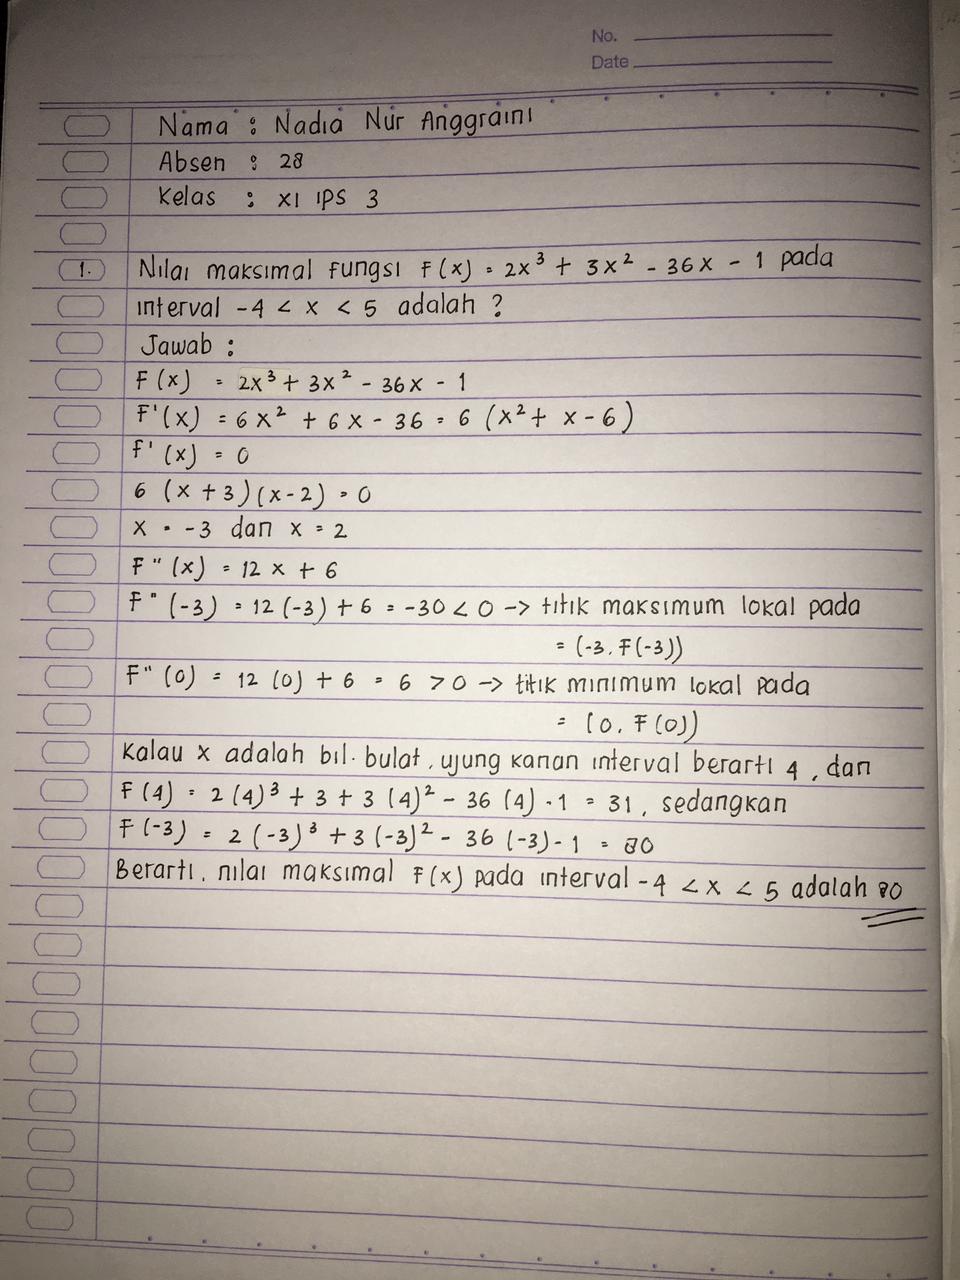 No.
Date
Nama : Nadia Nur Anggraini
Absen : 28
Kelas : XI IPS 3
1. Nilai maksimal fungsi F(x) = 2x³ + 3x² - 36x - 1 pada
interval -4 < x < 5 adalah ?
Jawab :
F(x) = 2x³ + 3x² - 36x - 1
F'(x) = 6x² + 6x - 36 = 6 (x² + x - 6)
f'(x) = 0
6 (x + 3)(x - 2) = 0
x = -3 dan x = 2
F"(x) = 12x + 6
F"(-3) = 12(-3) + 6 = -30 < 0 -> titik maksimum lokal pada
= (-3, F(-3))
F"(0) = 12 (0) + 6 = 6 > 0 -> titik minimum lokal pada
= (0, F(0))
Kalau x adalah bil. bulat, ujung kanan interval berarti 4, dan
F(4) = 2(4)³ + 3 + 3(4)² - 36(4) - 1 = 31, sedangkan
F(-3) = 2(-3)³ + 3(-3)² - 36(-3) - 1 = 80
Berarti, nilai maksimal F(x) pada interval -4 < x < 5 adalah 80